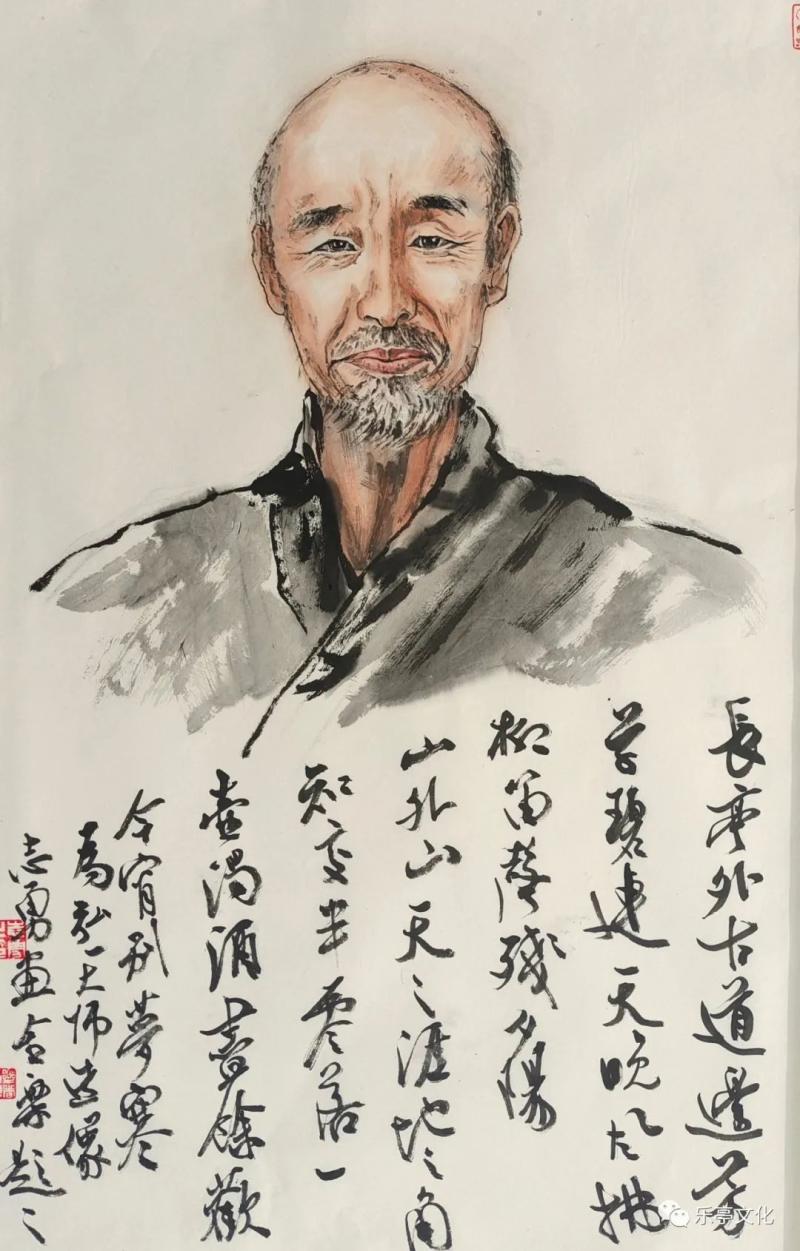 長亭外古道邊芳
草碧連天晚風拂
柳笛聲殘夕陽
山外山天之涯地之角
知交半零落一
壺濁酒盡餘歡
今宵別夢寒
為弘一大師造像
志勇畫題之
乐亭文化